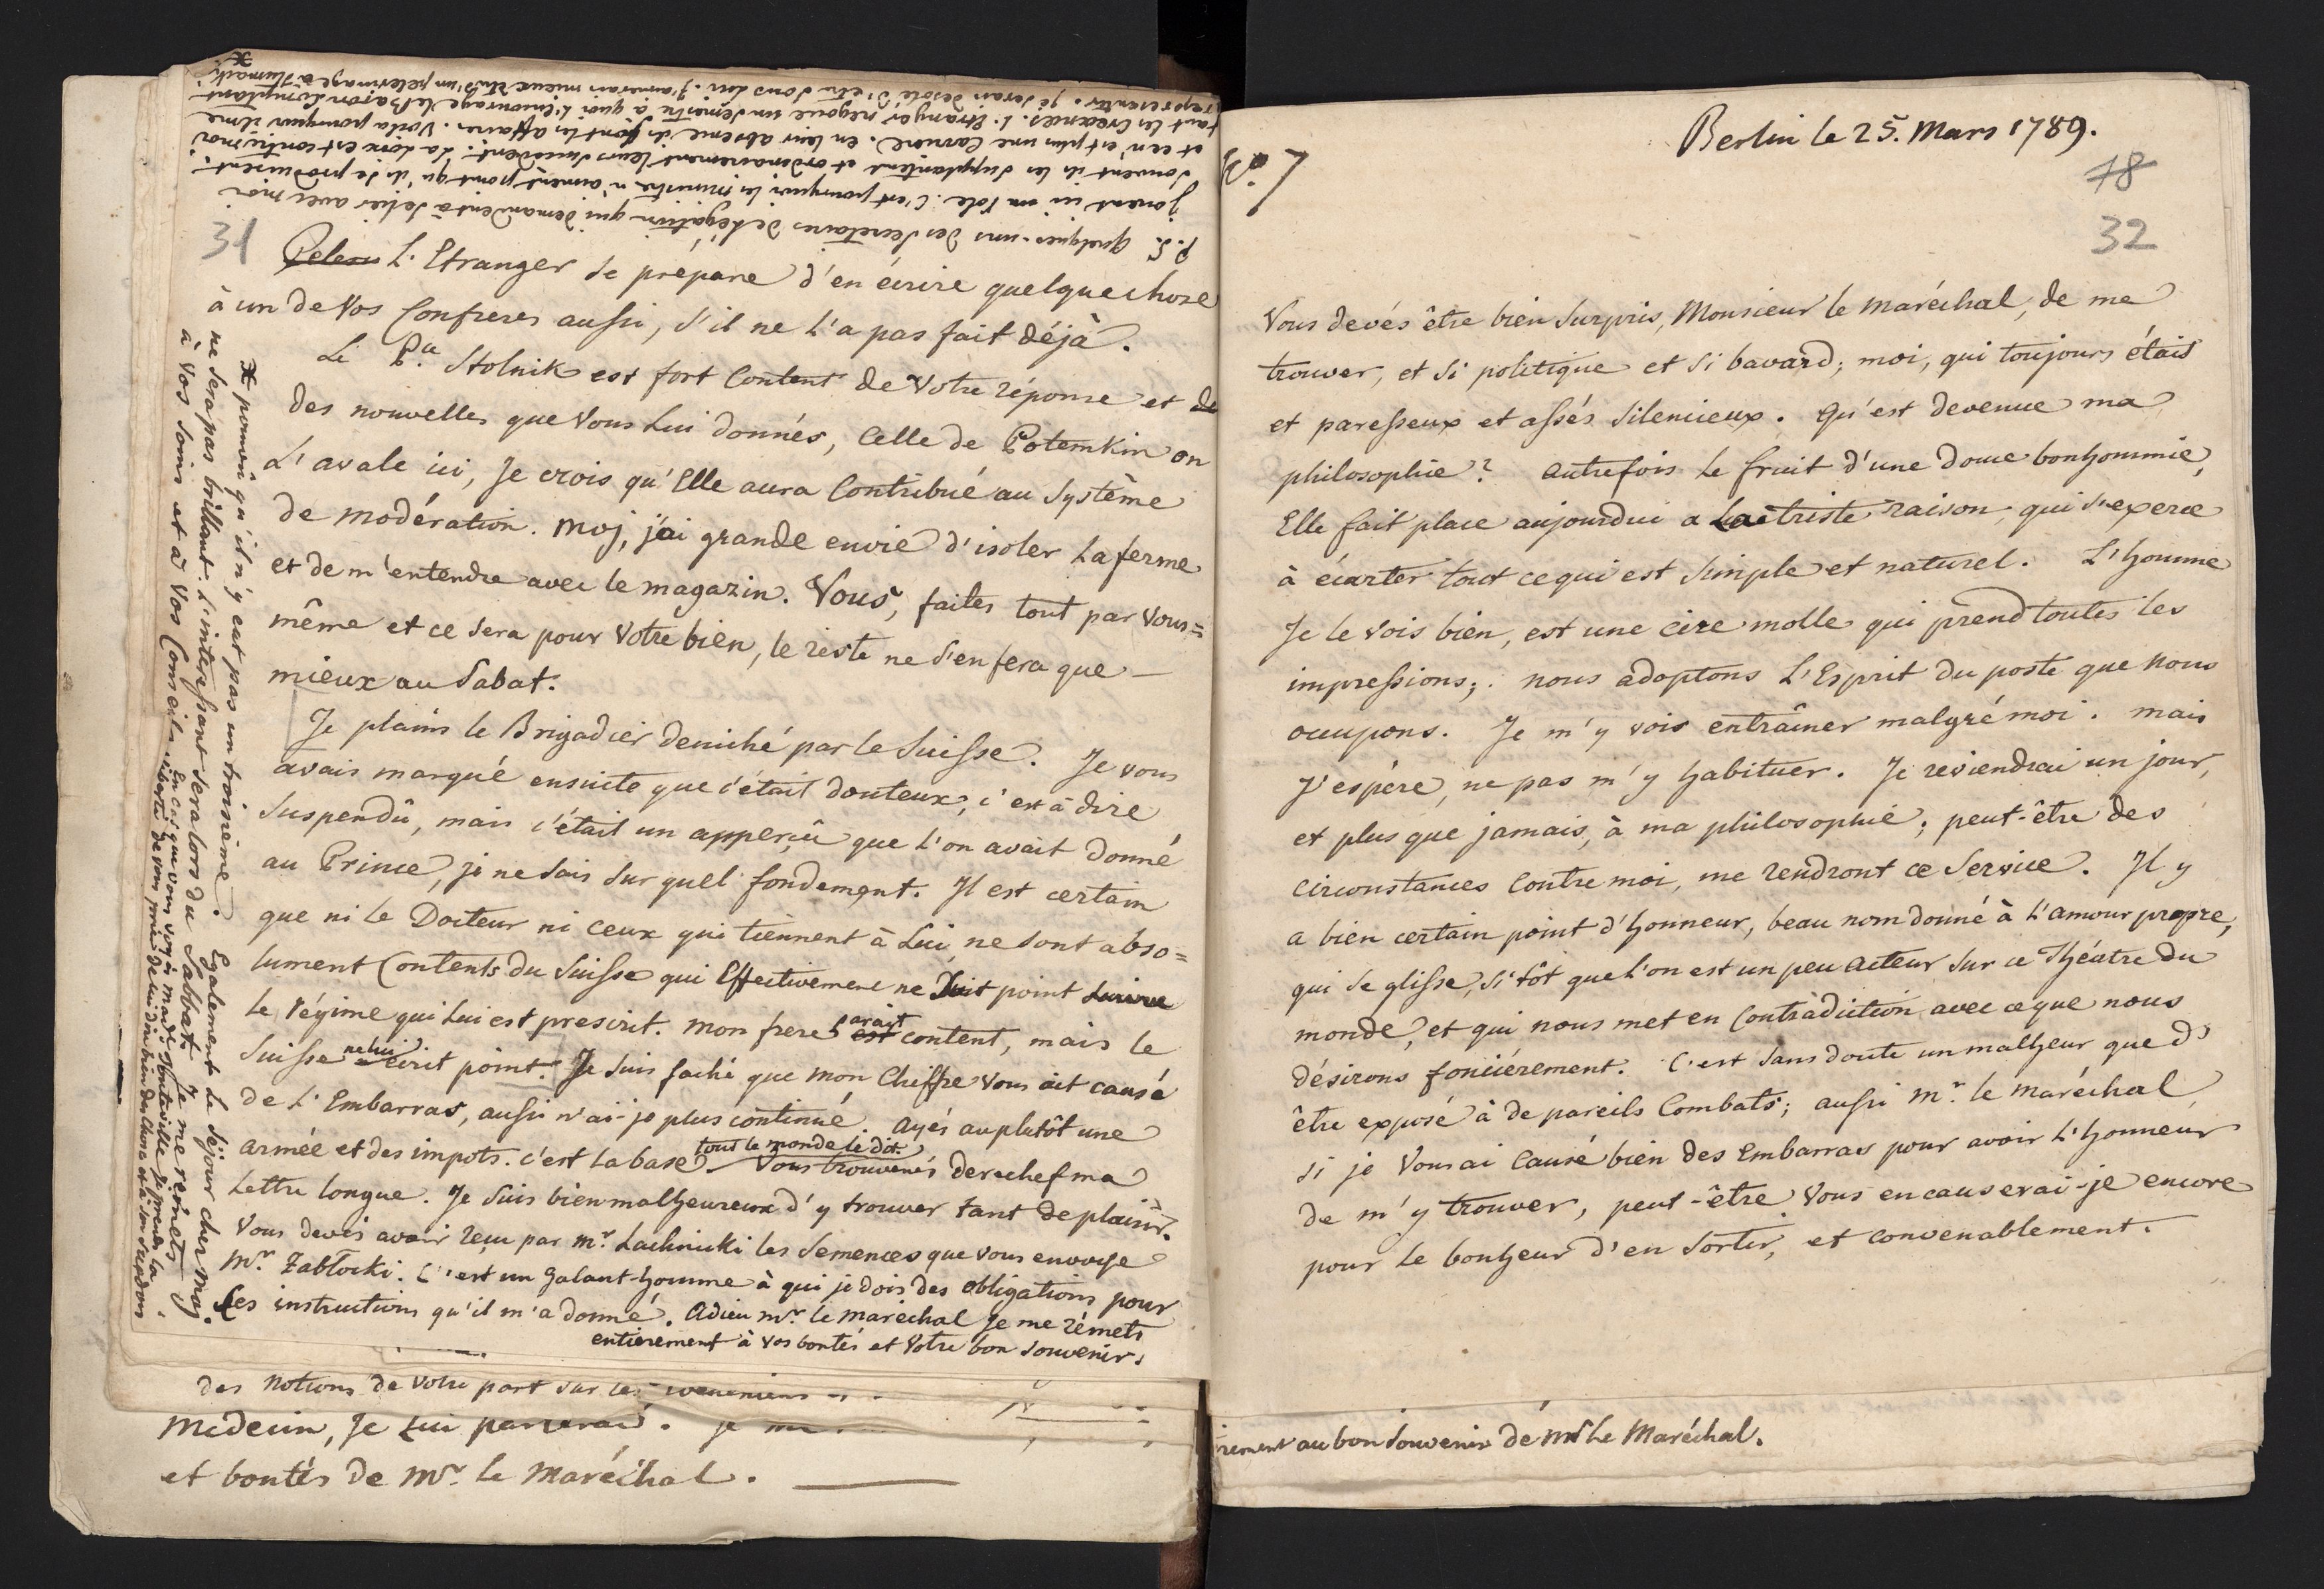 P.S. Quelques-uns des Secretaires de Légation qui demandent à se lier avec moi
jouent ici un rôle. C'est pourquoi les ministres n'aiment point qu'ils se produisent.
souvent ils les supplantent et ordinairement leurs succèdent. La loix est contre moi
et ce n'est plus une Carriere. En leur absence ils font les affaires. Voila pourquoi il me
faut les Creances. L'Etranger negocie un Ministre à quoi l'encourage le Baron Comptant
representer. je serai desolé d'etre sous lui. J'aimerais mieux un pelerinage à
31
L'Etranger se prépare d'en écrire quelque chose
à un de Vos Confreres aussi, s'il ne l'a pas fait déjà.
Le P.ce Stolnik est fort Content de Votre réponse et de
des nouvelles que Vous Lui donnés, Celle de Potemkin on
L'avale ici, Je crois qu'Elle aura Contribué au Système
de modération. moj, j'ai grande envie d'isoler la ferme
et de m'entendre avec le magazin. Vous, faites tout par Vous=
même et ce sera pour Votre bien, le reste ne s'en fera que
mieux au Sabat.
Je plains le Brigadier deniché par le Suisse. Je vous
avais marqué ensuite que c'était douteux, c'est à dire
Suspendû, mais c'était un apperçû que l'on avait donné
au Prince, je ne sais sur quel fondement. Il est certain
que ni le Docteur ni ceux qui tiennent à Lui, ne sont abso=
lument Contents du Suisse qui Effectivement ne suit point
le régime qui Lui est prescrit. mon frere parait est content, mais le
Suisse ne lui écrit point. Je suis faché que mon Chiffre vous ait causé
de l'Embarras, aussi n'ai-je plus continué. ayés au plutôt une
armée et des impots. c'est la base tout le monde le dit. Vous trouverés derechef ma
Lettre longue. Je suis bien malheureux d'y trouver tant de plaisir.
Vous devés avoir reçu par mr. Lachnicki les Semences que vous envoye
Mr. Zabłocki. C'est un Galant-homme à qui je dois des obligations pour
Les instructions qu'il m'a donné. Adieu mr. le marechal je me rémets
entierement à vos bontés et Votre bon souvenir.
pourvû qu'il n'y eut pas un troisième. Egalement le séjour cher moj.
ne sera pas brillant. L'interessant sera lors du Sabbath Je me remets
à Vos soins et à Vos Conseils. En cas que vous soyés mandé je prends la
liberté de vous prier de lui dire
des notions de votre part sur les
Medecin, Je Lui parlerai. je me
et bontés de Mr. le Maréchal.
No. 7
Berlin le 25. Mars 1789.
78
32
Vous devés être bien Surpris, Monsieur le maréchal, de me
trouver, et si politique et si bavard; moi, qui toujours étais
et paresseux et assés silencieux. Qu'est devenue ma
philosophie? autrefois le fruit d'une douce bonhommie,
Elle fait place aujourdui a La triste raison, qui s'exerce
à écarter tout ce qui est simple et naturel. L'homme
Je le vois bien, est une cire molle qui prend toutes les
impressions; nous adoptons L'Esprit du poste que nous
occupons. Je m'y vois entraîner malgré moi. mais
J'espère, ne pas m'y habituer. Je reviendrai un jour,
et plus que jamais, à ma philosophie; peut-être des
circonstances contre moi, me rendront ce Service. Il y
a bien certain point d'honneur, beau nom donné à l'amour propre,
qui se glisse, si tôt que l'on est un peu acteur sur ce Théatre du
monde, et qui nous met en Contradiction avec ce que nous
désirons foncièrement. C'est sans doute un malheur que d'
être exposé à de pareils Combats; aussi mr. le maréchal,
si je Vous ai causé bien des Embarras pour avoir L'honneur
de m'y trouver, peut-être Vous en causerai-je encore
pour le bonheur d'en sortir, et convenablement.
au bon Souvenir de mr Le Maréchal.